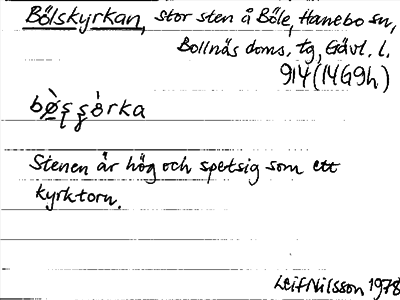 Bölskyrkan, stor sten å Böle, Hanebo sn,
Bollnäs doms. tg, Gävl. l.
914 (14G9h)
Stenen är hög och spetsig som ett
kyrktorn.
Leif Nilsson 1978